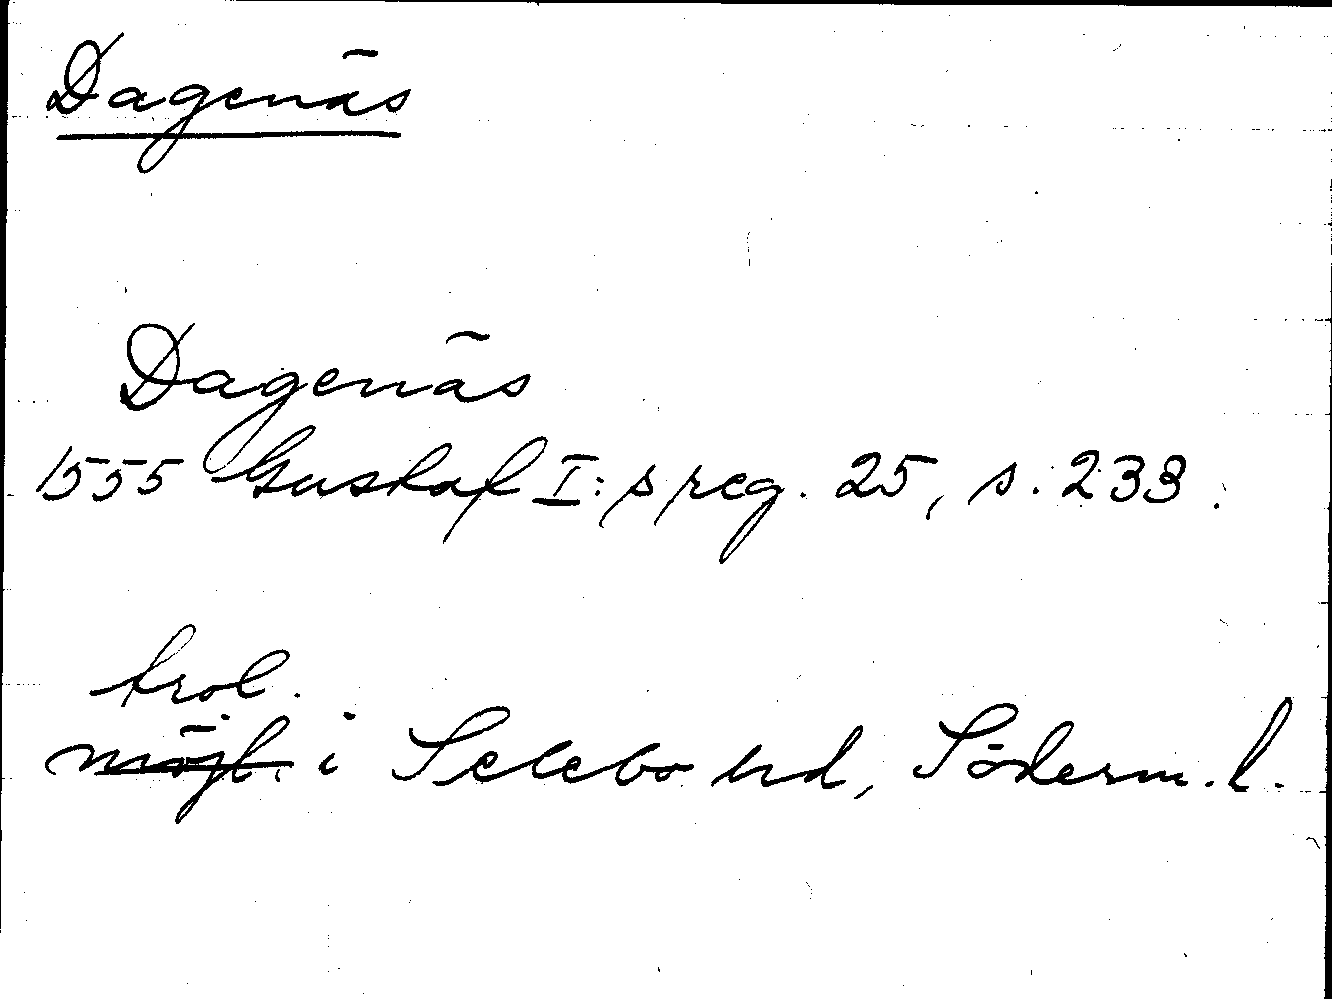 Dagenäs
Dagenäs
1555 Gustaf I:s reg. 25, s. 233.
trol.
möjl. i Selebo hd, Söderm. l.